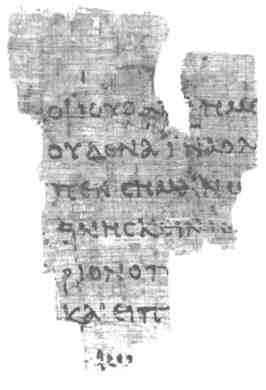 ΟΙΙΟΥΔΑΙ ΗΜΕ
ΟΥΔΕΝΑΙΝΑΟΛ
ΠΕΝCΗΜΑΙΝΩ
ΘΝΗCΚΕΙΝΙ
ΡΙΟΝΟΠ
ΚΑΙΕΙΠ